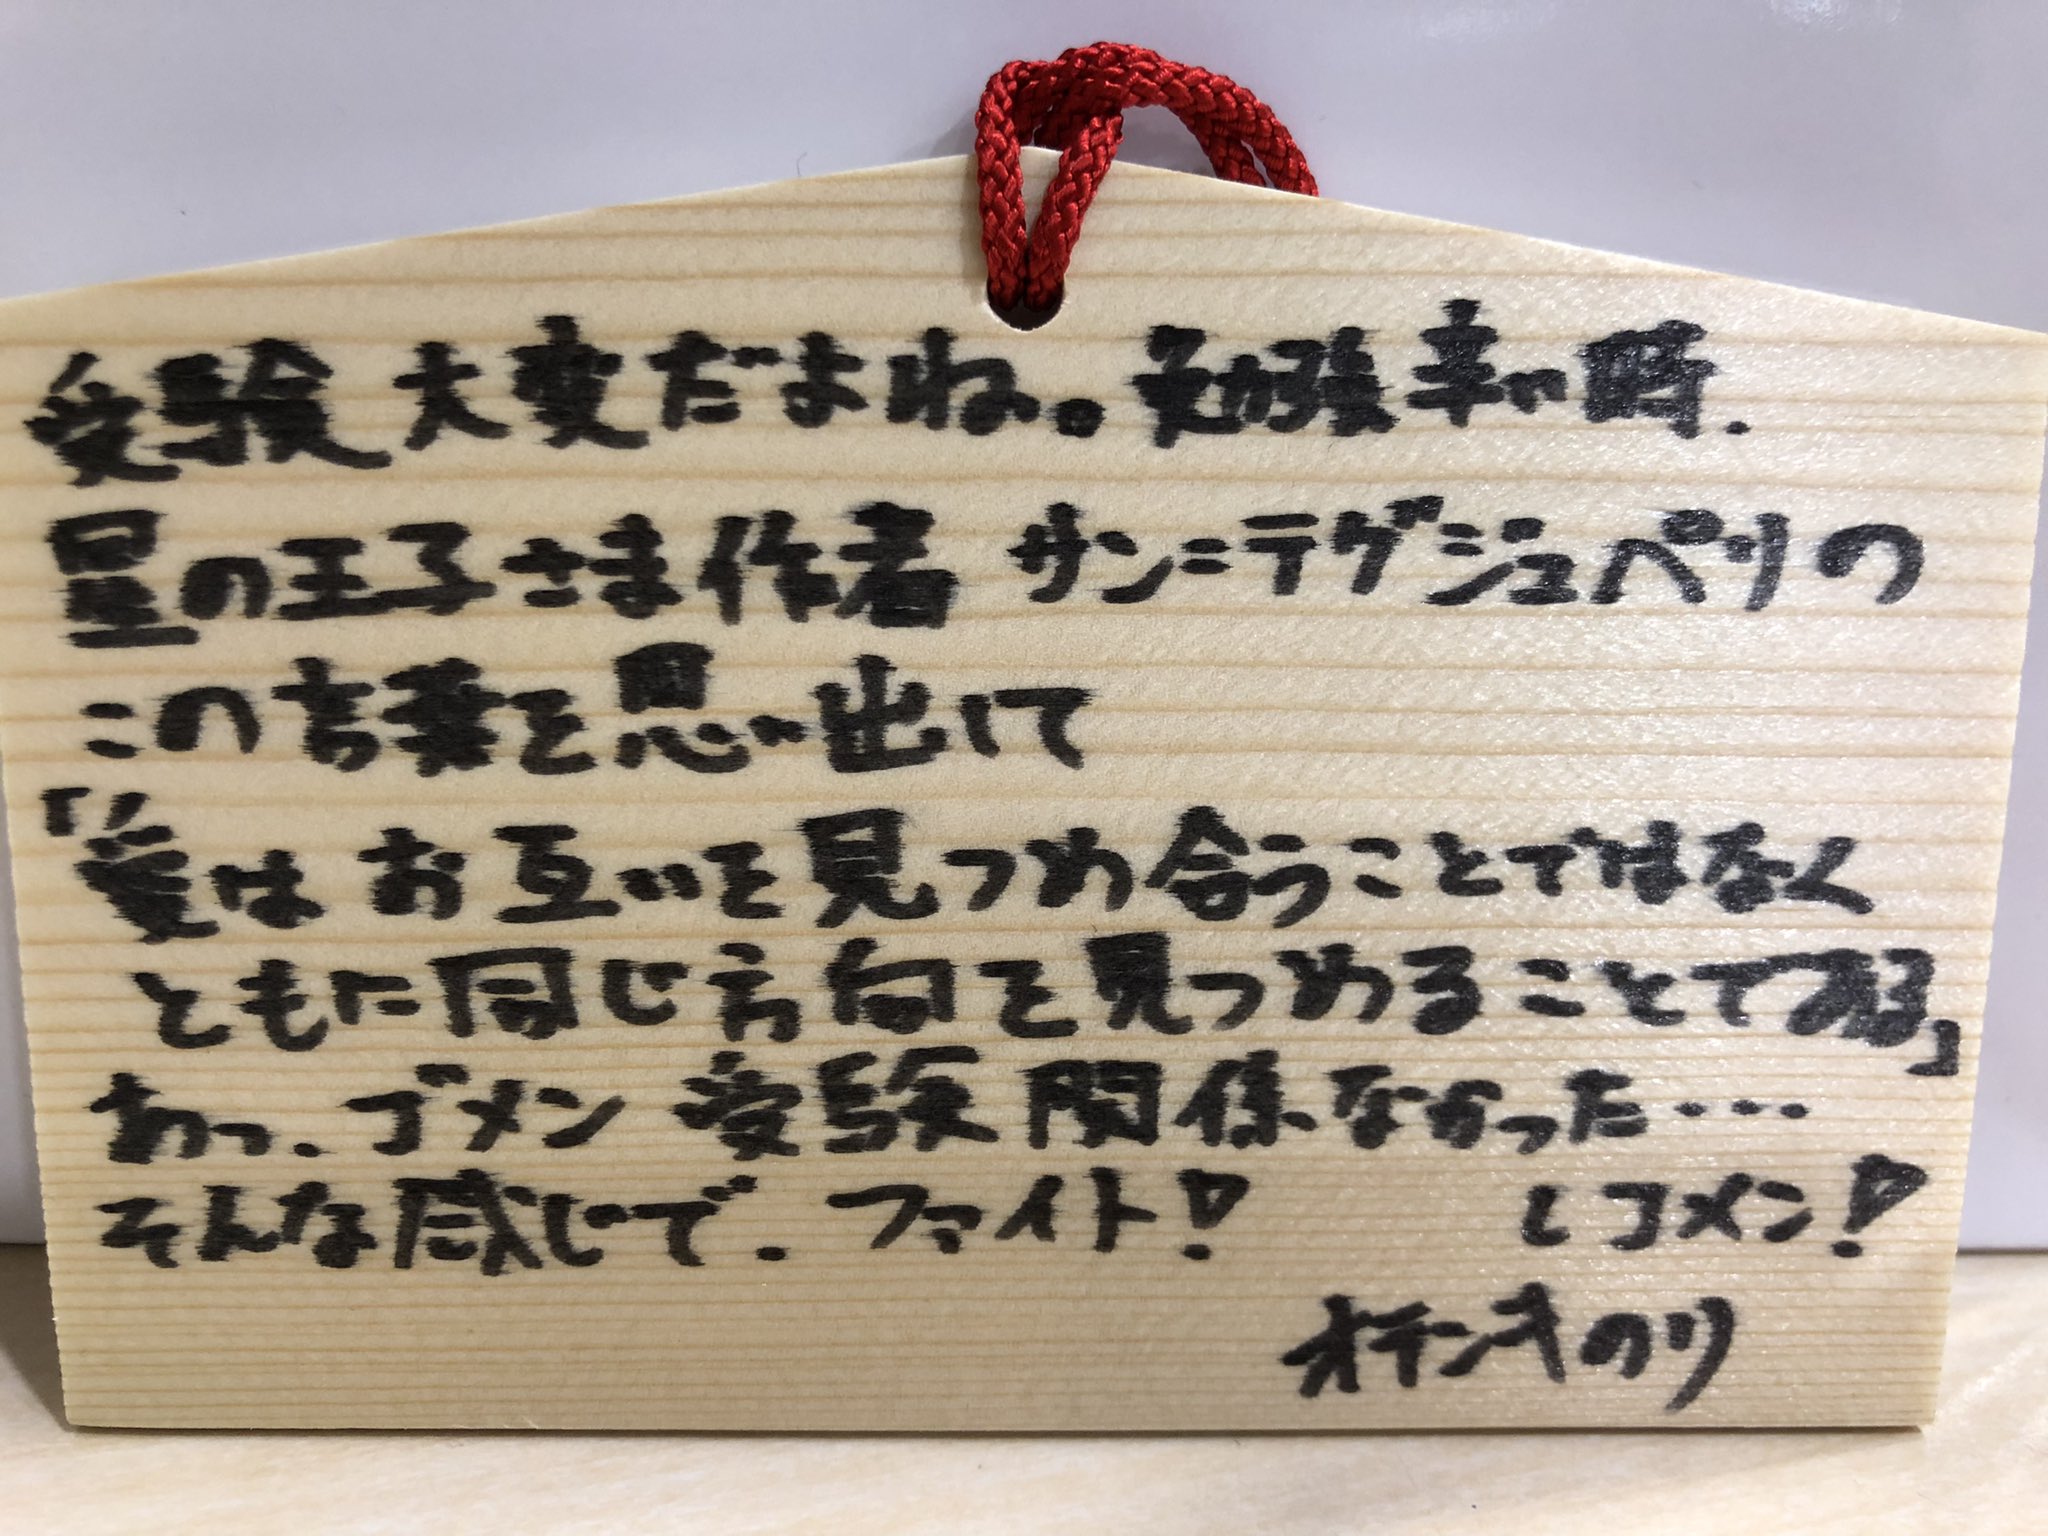 受験大変だよね。勉強辛い時.
星の王子さま作者 サン=テグジュペリの
この言葉を思い出して
「愛はお互いを見つめ合うことではなく
ともに同じ方向を見つめることである」
あっ、ゴメン 受験関係なかった・・・
そんな感じで. ファイト! レコメン!
オテンキのり